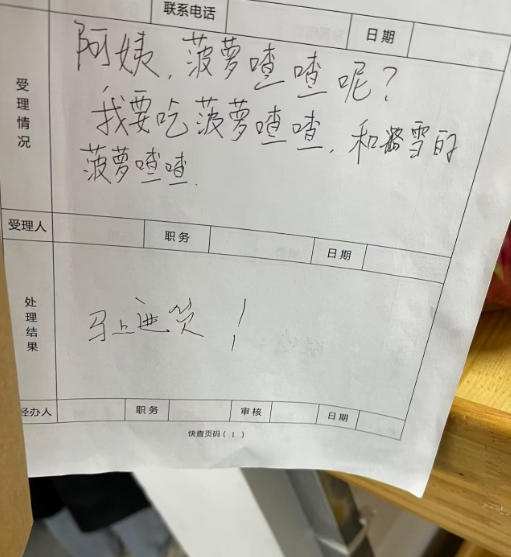 联系电话 日期
受理情况
阿姨，菠萝喳喳呢？
我要吃菠萝喳喳，和路雪的
菠萝喳喳.
受理人 职务 日期
处理结果
马上进货！
经办人 职务 审核 日期
快查页码（1）